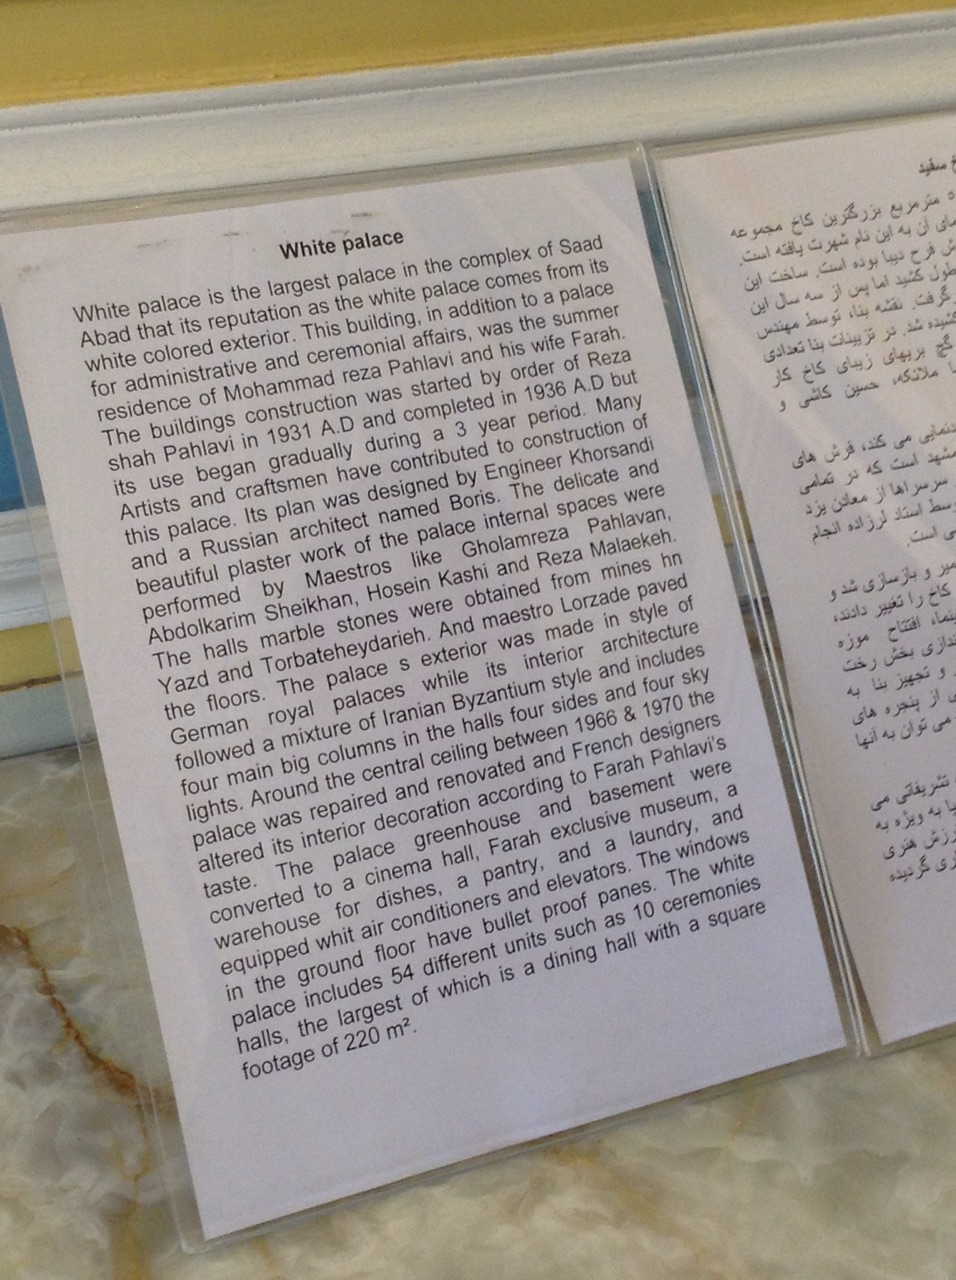 White palace
White palace is the largest palace in the complex of Saad
Abad that its reputation as the white palace comes from its
white colored exterior. This building, in addition to a palace
for administrative and ceremonial affairs, was the summer
residence of Mohammad reza Pahlavi and his wife Farah.
The buildings construction was started by order of Reza
shah Pahlavi in 1931 A.D and completed in 1936 A.D but
its use began gradually during a 3 year period. Many
Artists and craftsmen have contributed to construction of
this palace. Its plan was designed by Engineer Khorsandi
and a Russian architect named Boris. The delicate and
beautiful plaster work of the palace internal spaces were
performed by Maestros like Gholamreza Pahlavan,
Abdolkarim Sheikhan, Hosein Kashi and Reza Malaekeh.
The halls marble stones were obtained from mines hn
Yazd and Torbateheydarieh. And maestro Lorzade paved
the floors. The palace s exterior was made in style of
German royal palaces while its interior architecture
followed a mixture of Iranian Byzantium style and includes
four main big columns in the halls four sides and four sky
lights. Around the central ceiling between 1966 & 1970 the
palace was repaired and renovated and French designers
altered its interior decoration according to Farah Pahlavi's
taste. The palace greenhouse and basement were
converted to a cinema hall, Farah exclusive museum, a
warehouse for dishes, a pantry, and a laundry, and
equipped whit air conditioners and elevators. The windows
in the ground floor have bullet proof panes. The white
palace includes 54 different units such as 10 ceremonies
halls, the largest of which is a dining hall with a square
footage of 220 m².
سفید
مترمربع بزرگترین کاخ مجموعه
آن به این نام شهرت یافته است.
فرح دیبا بوده است. ساخت این
طول کشید اما پس از سه سال این
گرفت. نقشه بنا، توسط مهندس
کشیده شد. در تزیینات بنا تعدادی
گچ بریهای زیبای کاخ کار
ملائکه، حسین کاشی و
می کند، فرش های
مشهد است که در تمامی
سرسراها از معادن یزد
توسط استاد لرزاده انجام
است.
و بازسازی شد و
کاخ را تغییر دادند،
افتتاح موزه
بخش رخت
و تجهیز بنا به
از پنجره های
می توان به آنها
تشریفاتی می
به ویژه به
ارزش هنری
گردیده